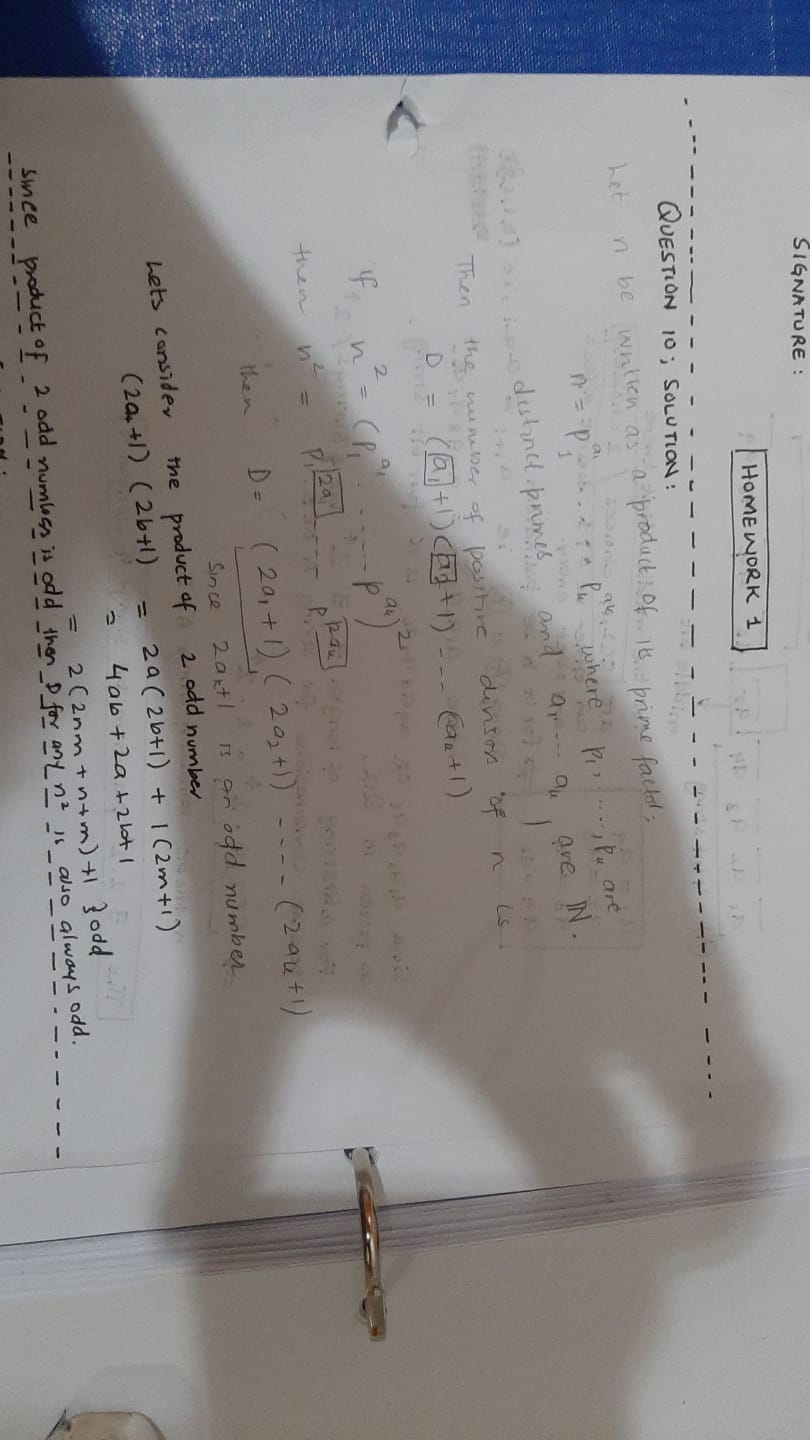 SIGNATURE :
HOMEWORK 1
QUESTION 10 ; SOLUTION :
Let n be written as a product of its prime factor;
n = p₁^a₁ . . . . pₖ^aₖ where p₁, ...., pₖ are
distinct primes and a₁ ... aₖ are ℕ.
Then the number of positive divisors of n is
D = (a₁+1)(a₂+1) --- (aₖ+1)
if n² = (p₁^a₁ ...... p^aₖ)²
then n² = p₁^2a₁ ...... p^2aₖ
then D = (2a₁+1)(2a₂+1) ---- (2aₖ+1)
Since 2aₖ+1 is an odd number
Lets consider the product of 2 odd number
(2a+1) (2b+1) = 2a(2b+1) + 1(2m+1)
= 4ab+2a+2b+1
= 2(2nm+n+m)+1 } odd
Since product of 2 odd numbers is odd then D for any n² is also always odd.